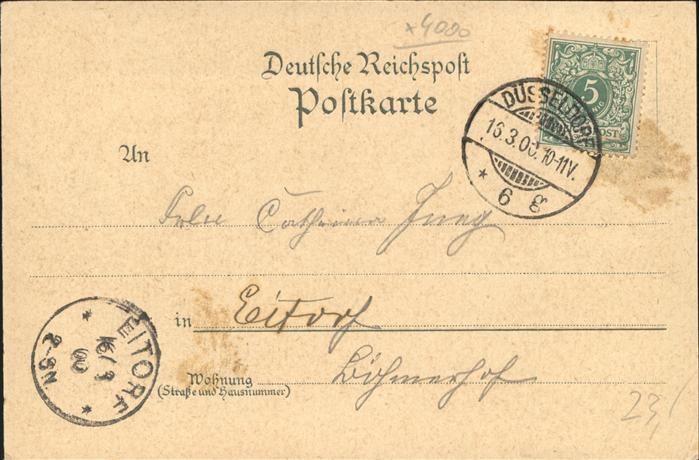 *4000
Deutsche Reichspost
Postkarte
5
DÜSSELDORF
16.3.00.10-11V.
* 6 g
An
Catharina Jung
in Eitorf
EITORF
16/3
00
2-3N.
* *
Wohnung Böhmerhof
(Straße und Hausnummer)
23,/